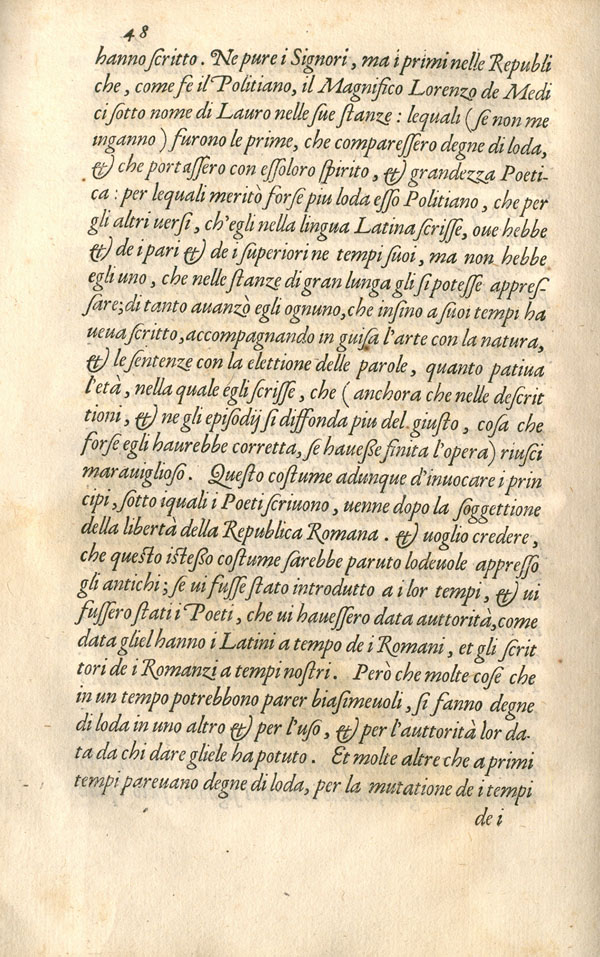 48
hanno scritto. Ne pure i Signori, ma i primi nelle Republi
che, come fe il Politiano, il Magnifico Lorenzo de Medi
ci sotto nome di Lauro nelle sue stanze: lequali (se non me
inganno) furono le prime, che comparessero degne di loda,
& che portassero con essoloro spirito, & grandezza Poeti-
ca: per lequali meritò forse piu loda esso Politiano, che per
gli altri uersi, ch'egli nella lingua Latina scrisse, oue hebbe
& de i pari & de i superiori ne tempi suoi, ma non hebbe
egli uno, che nelle stanze di gran lunga gli si potesse appres-
sare; di tanto auanzò egli ognuno, che insino a suoi tempi ha
ueua scritto, accompagnando in guisa l'arte con la natura,
& le sentenze con la elettione delle parole, quanto patiua
l'età, nella quale egli scrisse, che (anchora che nelle descrit
tioni, & ne gli episodij si diffonda piu del giusto, cosa che
forse egli haurebbe corretta, se hauesse finita l'opera) riusci
marauiglioso. Questo costume adunque d'inuocare i prin
cipi, sotto iquali i Poeti scriuono, uenne dopo la soggettione
della libertà della Republica Romana. & uoglio credere,
che questo istesso costume sarebbe paruto lodeuole appresso
gli antichi; se ui fusse stato introdutto a i lor tempi, & ui
fussero stati i Poeti, che ui hauessero data auttorità, come
data gliel hanno i Latini a tempo de i Romani, et gli scrit
tori de i Romanzi a tempi nostri. Però che molte cose che
in un tempo potrebbono parer biasimeuoli, si fanno degne
di loda in uno altro & per l'uso, & per l'auttorità lor da-
ta da chi dare gliele ha potuto. Et molte altre che a primi
tempi pareuano degne di loda, per la mutatione de i tempi
de i